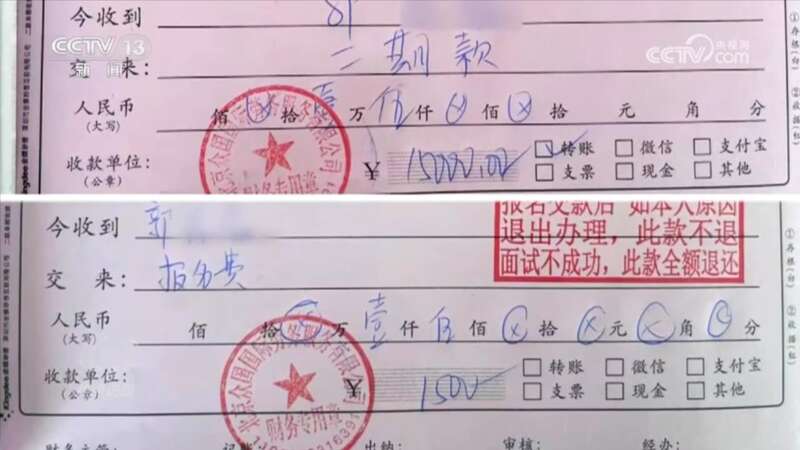 CCTV 13
新闻
CCTV 央视网
com
今收到
交 来： 二期款
人民币 佰 拾 壹 万 伍 仟 佰 拾 元 角 分
（大写）
收款单位： ¥ 15000.00 转账 微信 支付宝
（公章） 支票 现金 其他
财务专用章
①存根（白）
②收据（红）
今收到 郭
报名交款后 如本人原因
退出办理，此款不退
面试不成功，此款全额退还
交 来： 报名费
人民币 佰 拾 万 壹 仟 伍 佰 拾 元 角 分
（大写）
收款单位： ¥ 1500 转账 微信 支付宝
（公章） 支票 现金 其他
财务专用章
①存根（白）
②收据（红）
记账 出纳： 审核： 经办：